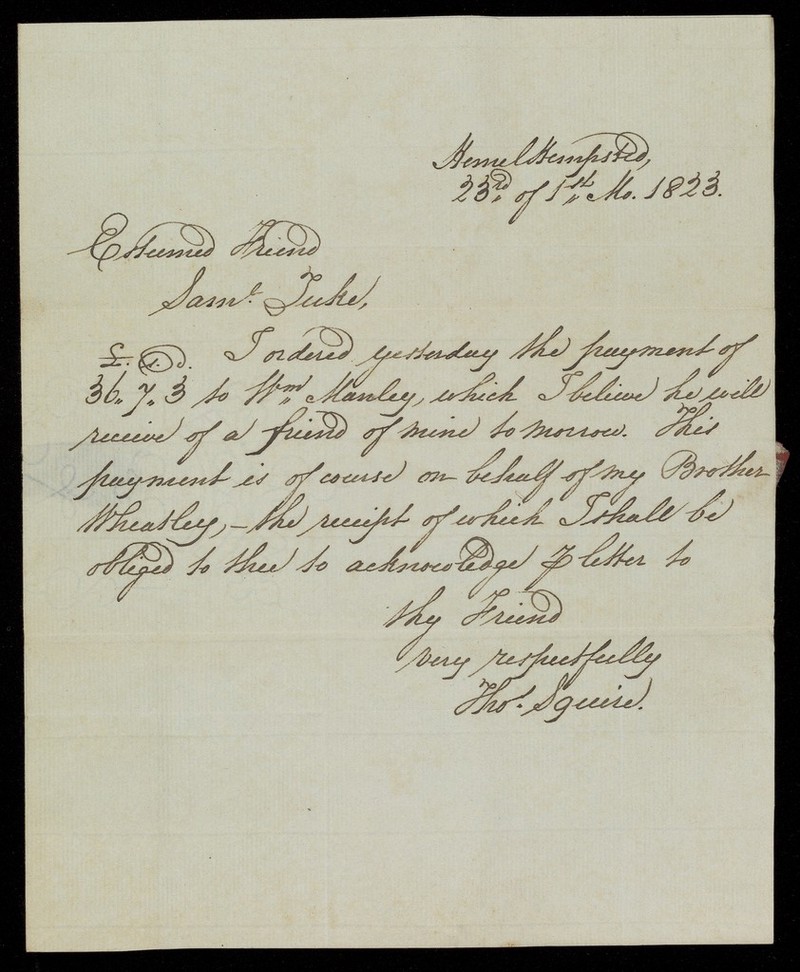 Hemel Hempsted,
23rd of 1st Mo. 1823.
Esteemed Friend
Saml. Tuke,
£. s. d. I ordered yesterday the payment of
36„ 7„ 3 to Wm. Manley, which I believe he will
receive of a friend of mine tomorrow. This
payment is of course on behalf of my Brother
Wheatley, – the receipt of which I shall be
obliged to thee to acknowledge ⅌ letter to
thy Friend
very respectfully
Thos. Squire.